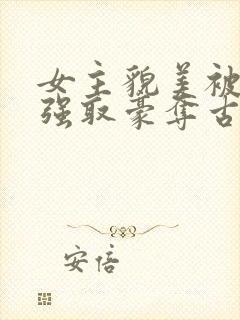 女主貌美被
强取豪夺古
安倍